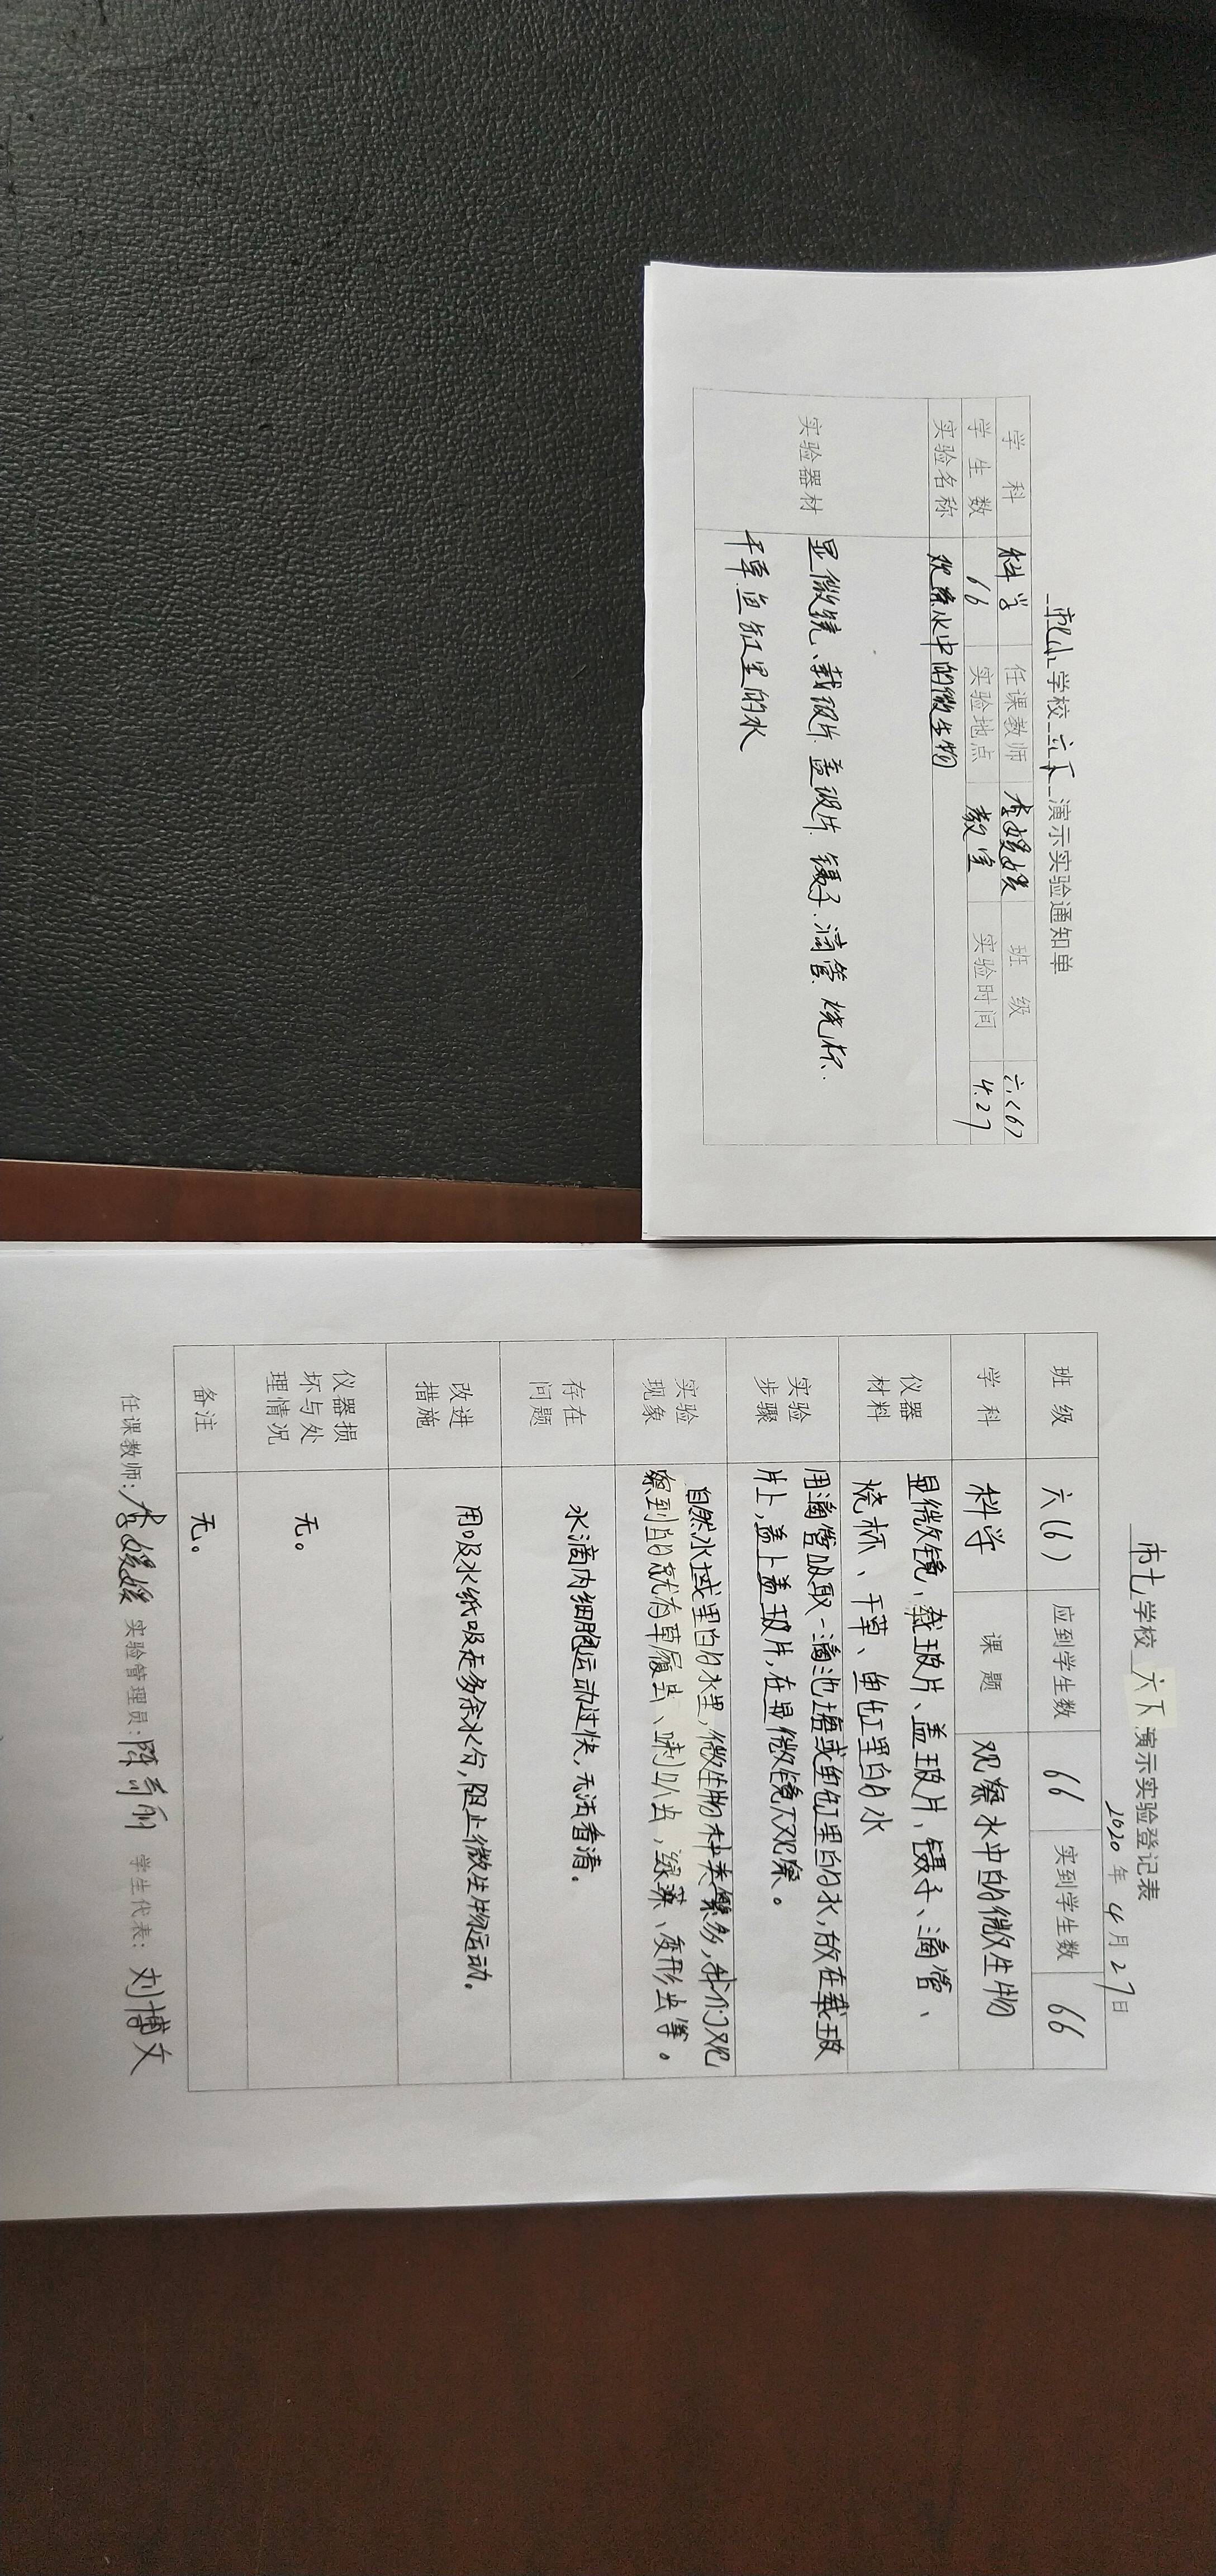 市七小学校 六下 演示实验通知单
学 科 科学 任课教师 李媛媛 班 级 六<6>
学 生 数 66 实验地点 教室 实验时间 4.27
实验名称 观察水中的微生物
实验器材 显微镜、载玻片、盖玻片、镊子、滴管、烧杯、
干草、鱼缸里的水
市七学校 六下 演示实验登记表
2020年4月27日
班 级 六(6) 应到学生数 66 实到学生数 66
学 科 科学 课 题 观察水中的微生物
仪器材料 显微镜、载玻片、盖玻片、镊子、滴管、
烧杯、干草、鱼缸里的水
实验步骤 用滴管吸取一滴池塘或鱼缸里的水,放在载玻
片上,盖上盖玻片,在显微镜下观察。
实验现象 自然水域里的水里,微生物种类繁多,我们观
察到的就有草履虫、喇叭虫,绿藻、变形虫等。
存在问题 水滴内细胞运动过快,无法看清。
改进措施 用吸水纸吸走多余水分,阻止微生物运动。
仪器损坏与处理情况 无。
备注 无。
任课教师:李媛媛 实验管理员:陈 丽 学生代表:刘博文